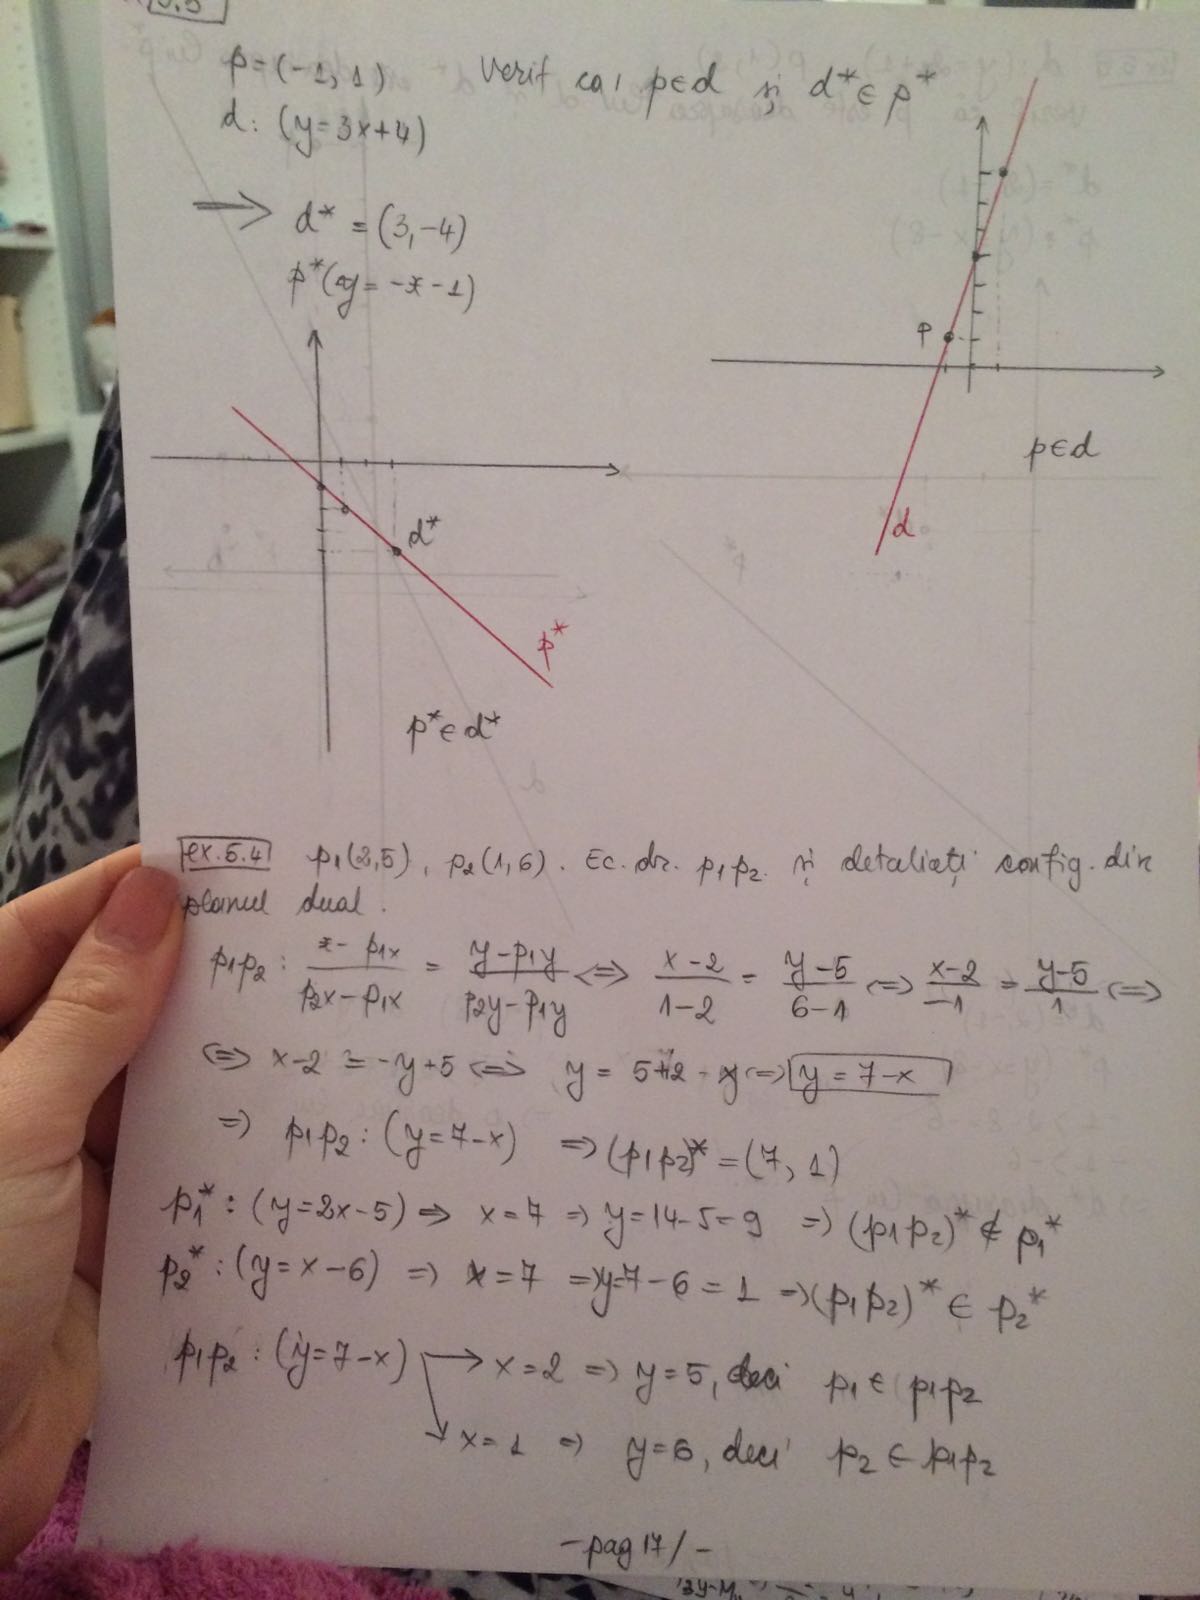 p=(-1,1) Verif că p∈d și d*∈ p*
d: (y=3x+4)
⇒ d* = (3,-4)
p*(y= -x-1)
p
p∈d
d
d*
p*
p*∈ d*
ex.5.4 p1(2,5), p2(1,6). Ec. dr. p1p2 și detaliați config. din
planul dual.
p1p2 : (x-p1x)/(p2x-p1x) = (y-p1y)/(p2y-p1y) ⇔ (x-2)/(1-2) = (y-5)/(6-1) ⇔ (x-2)/(-1) = (y-5)/1 ⇔
⇔ x-2 = -y+5 ⇔ y = 5+2-x ⇔ y = 7-x
⇒ p1p2 : (y=7-x) ⇒ (p1p2)* = (7, 1)
p1* : (y=2x-5) ⇒ x=7 ⇒ y=14-5=9 ⇒ (p1p2)* ∉ p1*
p2* : (y=x-6) ⇒ x=7 ⇒ y=7-6=1 ⇒ (p1p2)* ∈ p2*
p1p2 : (y=7-x) → x=2 ⇒ y=5, deci p1 ∈ p1p2
↓ x=1 ⇒ y=6, deci p2 ∈ p1p2
-pag 17/-